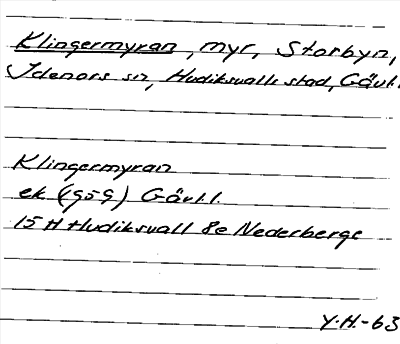 Klingermyran, myr, Storbyn,
Idenors sn, Hudiksvalls stad, Gävl.
Klingermyran
ek (959) Gävl.l.
15 H Hudiksvall 8e Nederberge
Y.H.-63